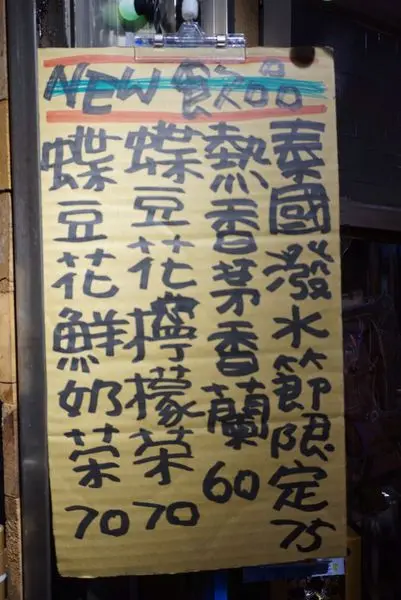 NEW飲品
泰國潑水節限定75
熱香茅香蘭60
蝶豆花檸檬茶70
蝶豆花鮮奶茶70